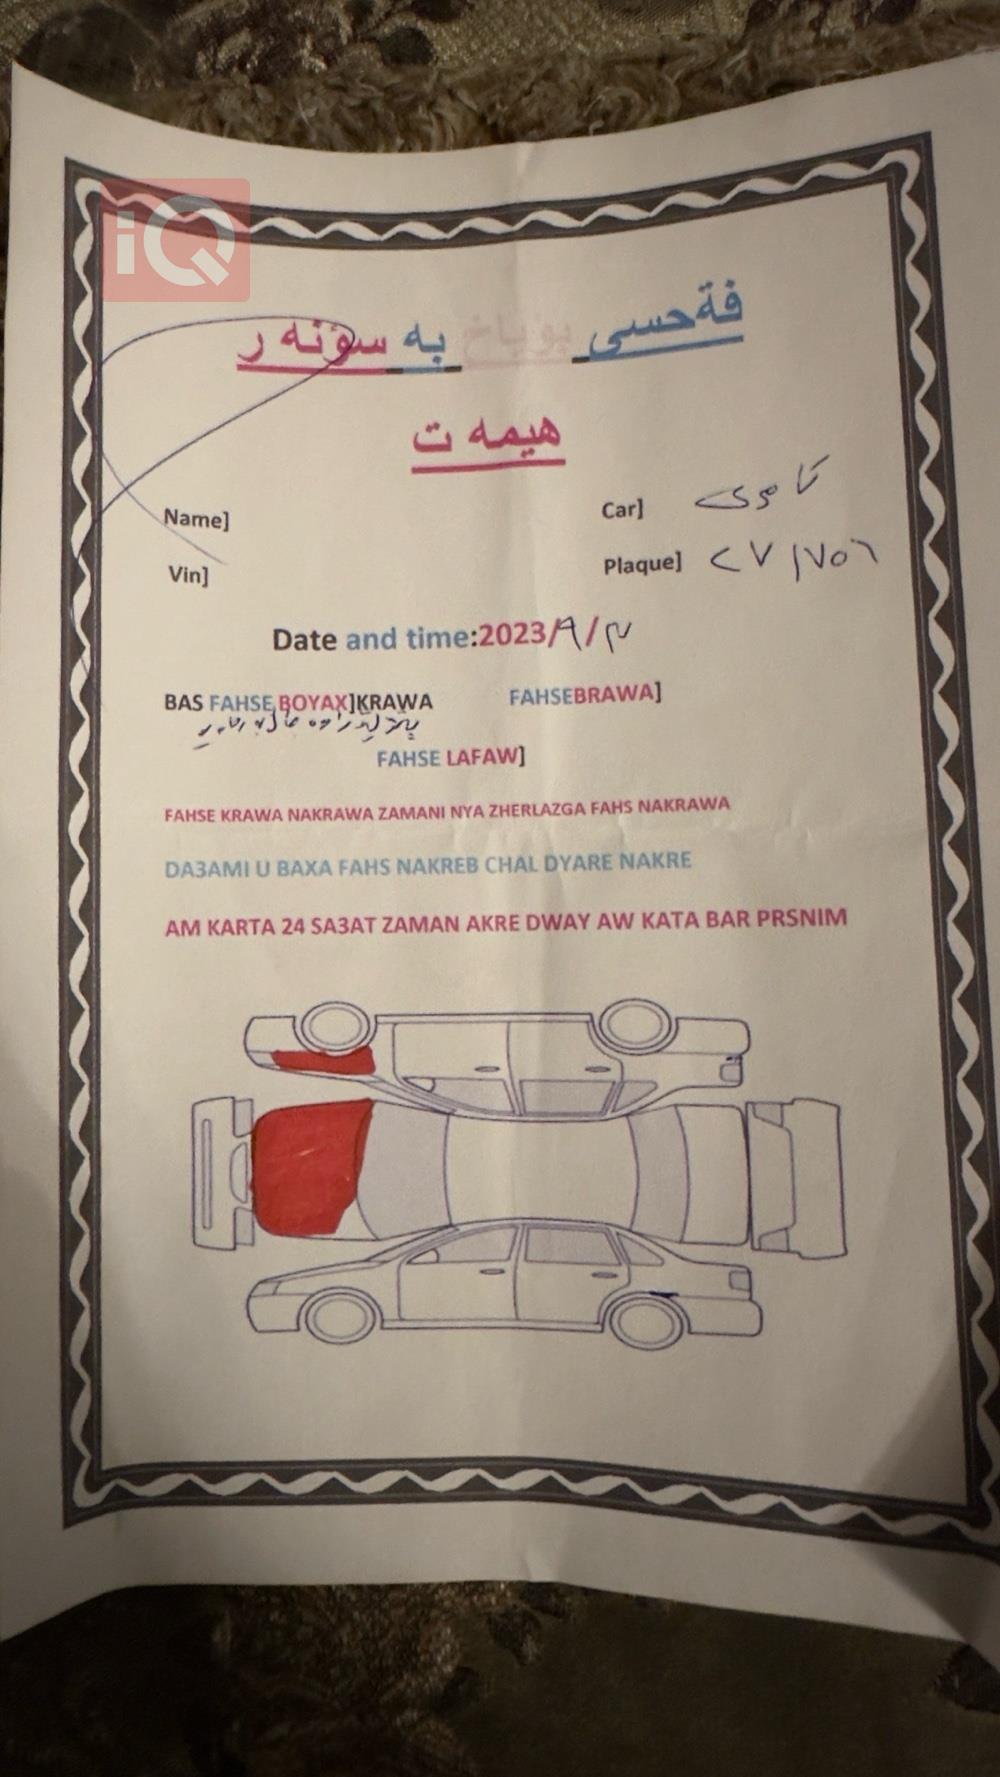 iQ
فةحسی بؤیاخ به سؤنه ر
هیمه ت
Name]
Car] کامری
Vin]
Plaque]
Date and time:2023/٩/
BAS FAHSE BOYAX]KRAWA FAHSEBRAWA]
FAHSE LAFAW]
FAHSE KRAWA NAKRAWA ZAMANI NYA ZHERLAZGA FAHS NAKRAWA
DA3AMI U BAXA FAHS NAKREB CHAL DYARE NAKRE
AM KARTA 24 SA3AT ZAMAN AKRE DWAY AW KATA BAR PRSNIM